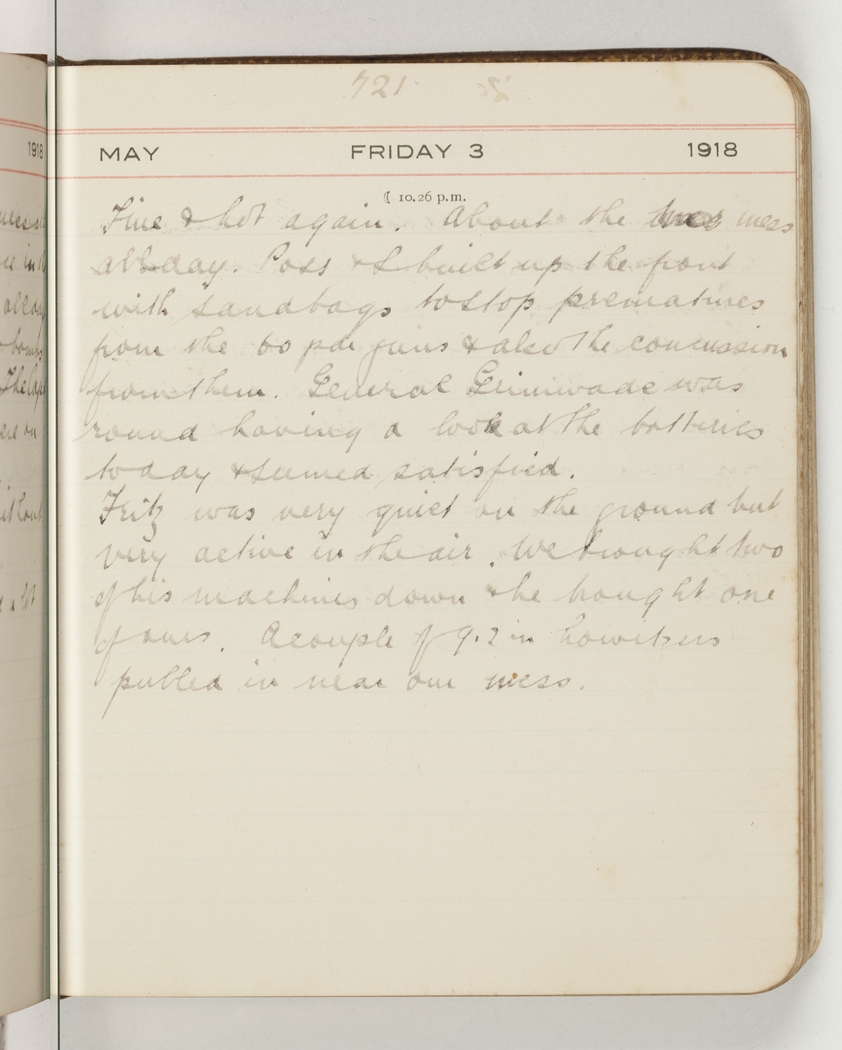 721
MAY FRIDAY 3 1918
☾ 10.26 p.m.
Fine & hot again. About the mess
all day. Poss & I built up the front
with sandbags to stop prematures
from the 60 pdr guns & also the concussion
from them. General Grimwade was
round having a look at the batteries
today & seemed satisfied.
Fritz was very quiet on the ground but
very active in the air. We brought two
of his machines down & he brought one
of ours. A couple of 9.2 in howitzers
pulled in near our mess.
1918